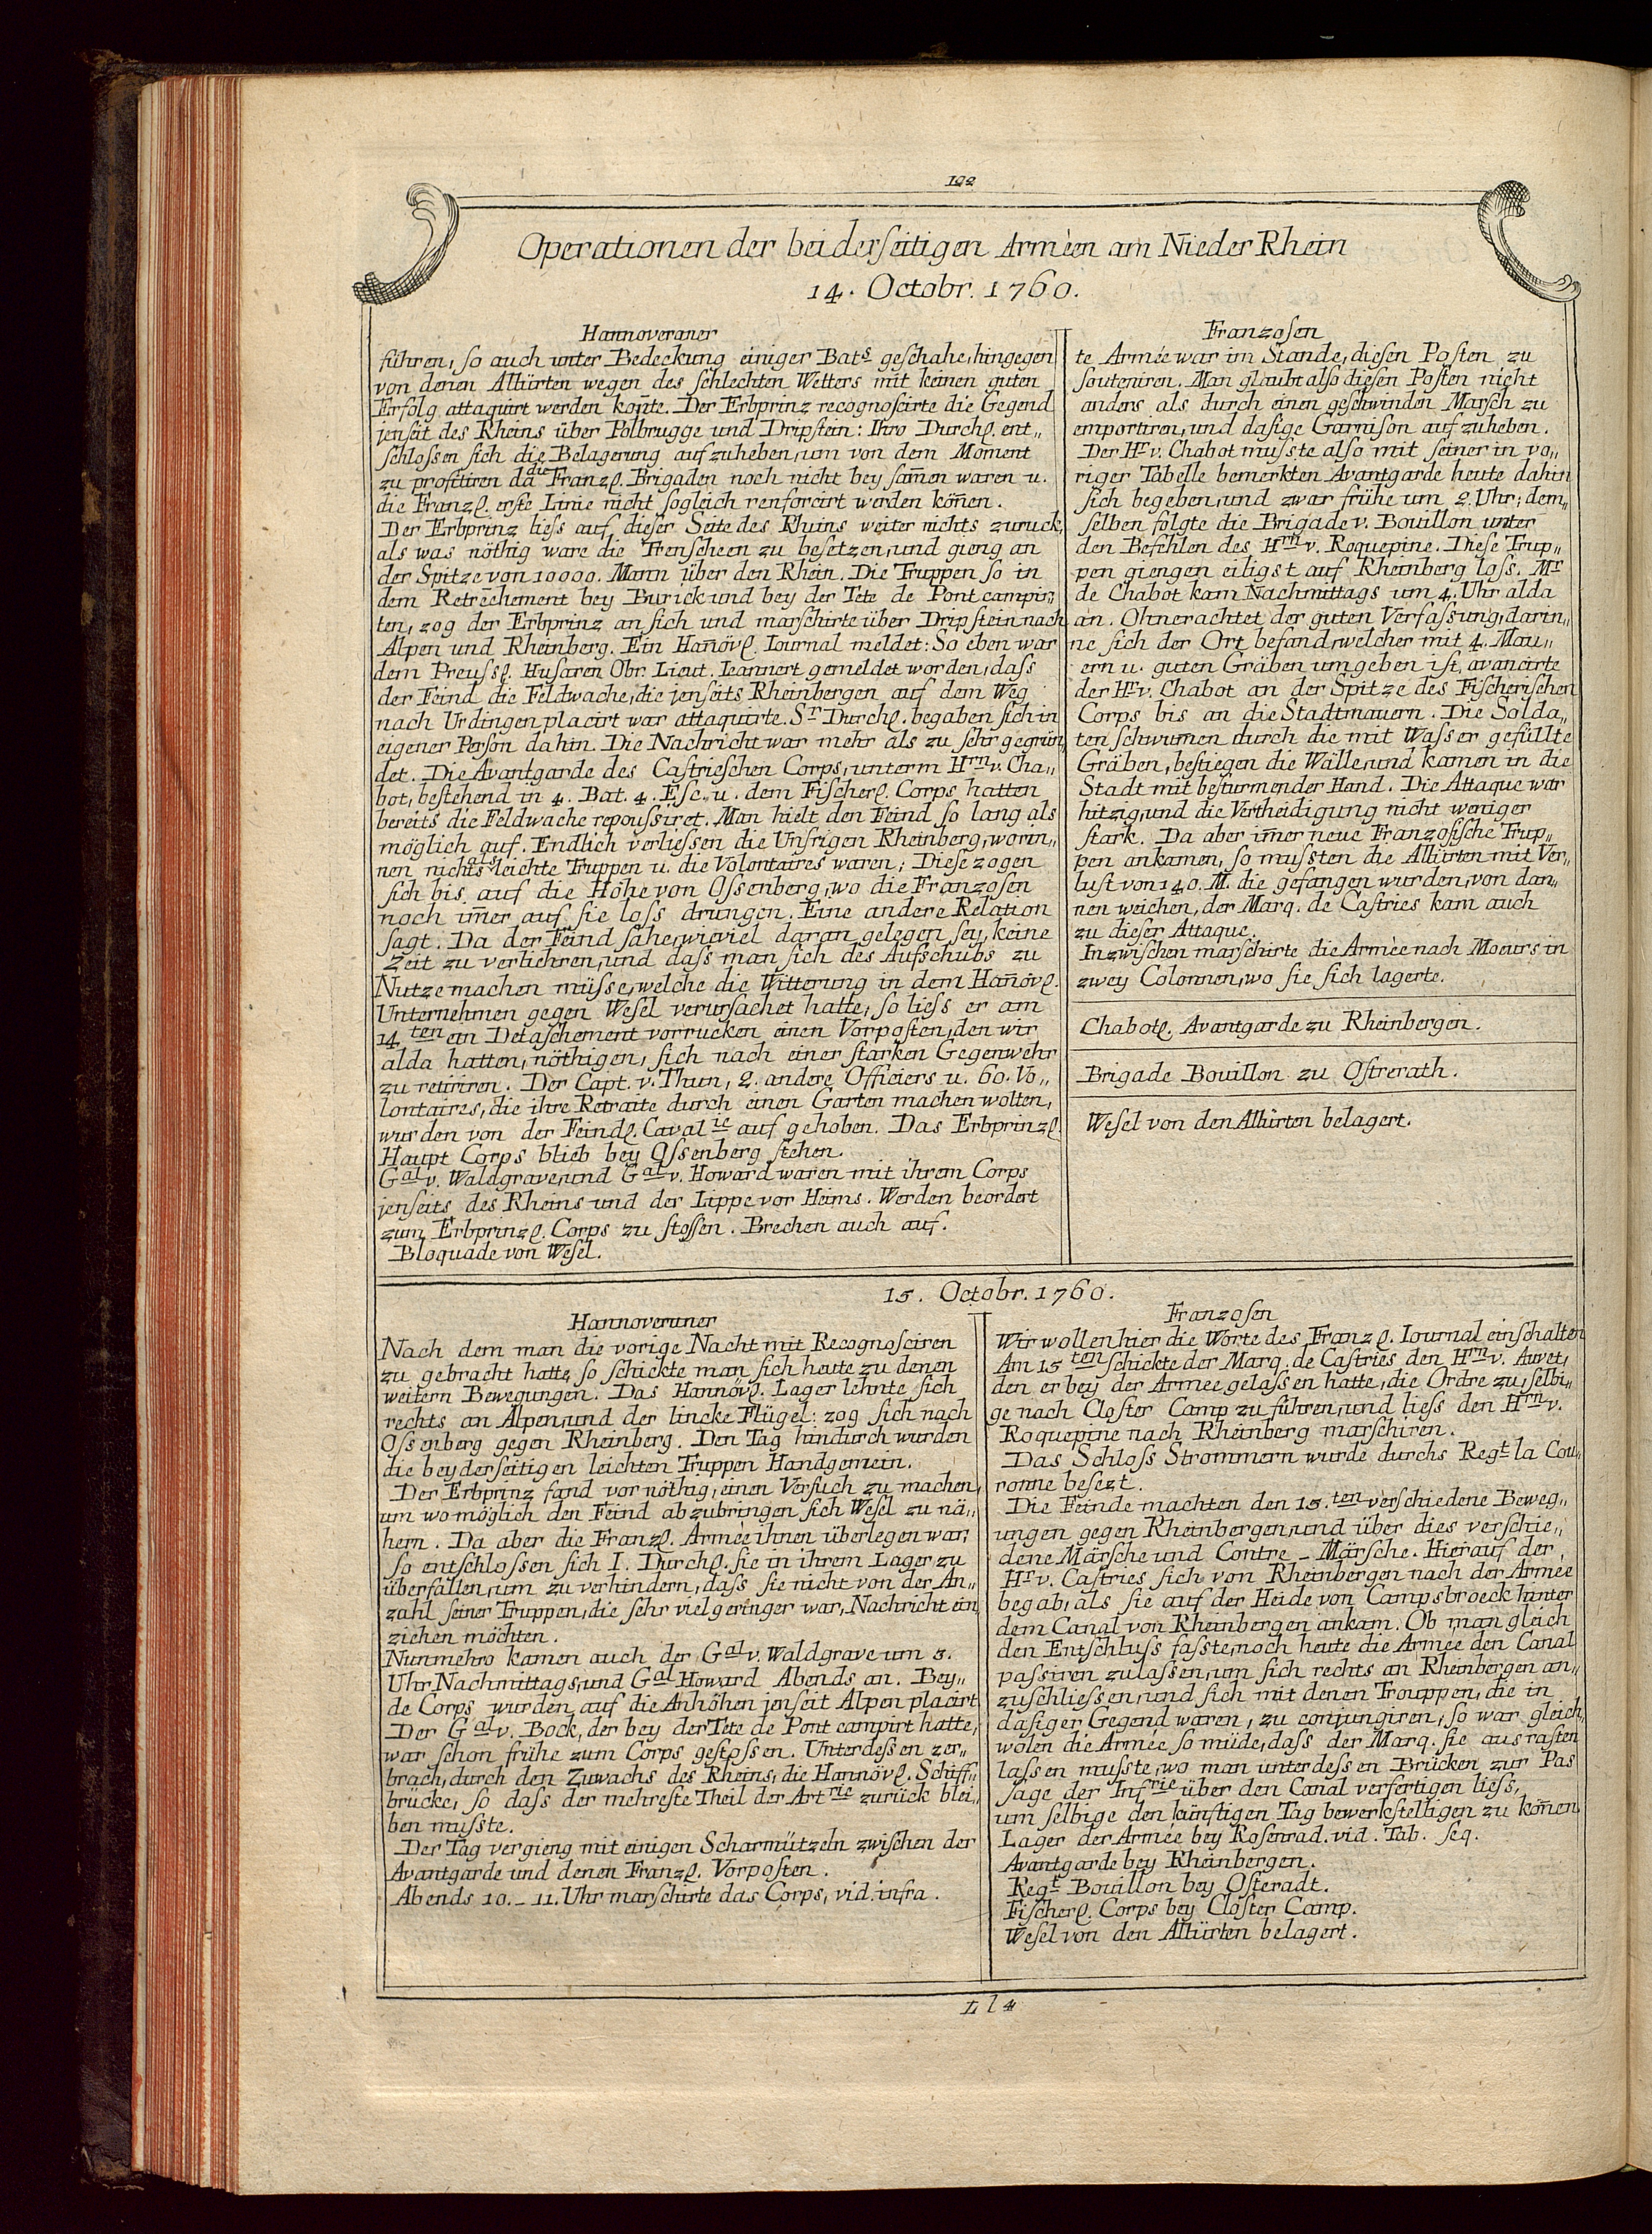 122
Operationen der beiderseitigen Arméen am Nieder Rhein
14. Octobr. 1760.
Hannoveraner
führen, so auch unter Bedeckung einiger Bats geschahe, hingegen
von denen Alliirten wegen des schlechten Wetters mit keinen guten
Erfolg attaquirt werden kon̄te. Der Erbprinz recognoscirte die Gegend
jenseit des Rheins über Polbrugge und Dripstein: Ihro Durchl. ent„
schlossen sich die Belagerung aufzuheben, um von dem Moment
zu profitiren da die Franzl. Brigaden noch nicht beysam̄en waren u.
die Franzl. erste Linie nicht sogleich renforcirt werden kön̄en.
Der Erbprinz liess auf dieser Seite des Rheins weiter nichts zuruck,
als was nöthig ware die Trenscheen zu besetzen, und gieng an
der Spitze von 10000. Mann über den Rhein. Die Truppen so in
dem Retrēchement bey Burick und bey der Tete de Pont campir„
ten, zog der Erbprinz an sich und marschirte über Dripstein nach
Alpen und Rheinberg. Ein Han̄övl. Iournal meldet: So eben war
dem Preussl. Husaren Obr. Lieut. Ieannert gemeldet worden, dass
der Feind die Feldwache, die jenseits Rheinbergen auf dem Weg
nach Urdingen placirt war attaquirte. Sr Durchl. begaben sich in
eigener Person dahin. Die Nachricht war mehr als zu sehr gegrün„
det. Die Avantgarde des Castrieschen Corps, unterm Hrn v. Cha„
bot, bestehend in 4. Bat. 4. Esc. u. dem Fischerl. Corps hatten
bereits die Feldwache repoussiret. Man hielt den Feind so lang als
möglich auf. Endlich verliessen die Unsrigen Rheinberg, worin„
nen nichts als leichte Truppen u. die Volontaires waren; Diese zogen
sich bis auf die Höhe von Ossenberg, wo die Franzosen
noch im̄er auf sie loss drungen. Eine andere Relation
sagt. Da der Feind sahe, wieviel daran gelegen sey, keine
Zeit zu verliehren, und dass man sich des Aufschubs zu
Nutze machen müsse, welche die Witterung in dem Han̄övl.
Unternehmen gegen Wesel verursachet hatte, so liess er am
14ten ein Detaschement vorrucken einen Vorposten, den wir
alda hatten, nöthigen, sich nach einer starken Gegenwehr
zu retiriren. Der Capt. v. Thun, 2. andere Officiers u. 60. Vo„
lontaires, die ihre Retraite durch einen Garten machen wolten,
wurden von der Feindl. Cavalie auf gehoben. Das Erbprinzl.
Haupt Corps blieb bey Ossenberg stehen.
Gal v. Waldgrave, und Gal v. Howard waren mit ihrem Corps
jenseits des Rheins und der Lippe vor Heims. Werden beordert
zum Erbprinzl. Corps zu stossen. Brechen auch auf.
Bloquade von Wesel.
Franzosen
te Armée war im Stande, diesen Posten zu
souteniren. Man glaubt also diesen Posten nicht
anders als durch einen geschwinden Marsch zu
emportiren, und dasige Garnison aufzuheben.
Der Hr v. Chabot musste also mit seiner in vo„
riger Tabelle bemerkten Avantgarde heute dahin
sich begeben, und zwar frühe um 2. Uhr; dem„
selben folgte die Brigade v. Bouillon unter
den Befehlen des Hrn v. Roquepine. Diese Trup„
pen giengen eiligst auf Rheinberg loss. Mr
de Chabot kam Nachmittags um 4. Uhr alda
an. Ohnerachtet der guten Verfassung, darin„
ne sich der Ort befand, welcher mit 4. Mau„
ern u. guten Gräben umgeben ist, avancirte
der Hr v. Chabot an der Spitze des Fischerischen
Corps bis an die Stadtmauern. Die Solda„
ten schwum̄en durch die mit Wasser gefüllte
Gräben, bestiegen die Wälle, und kamen in die
Stadt mit besturmender Hand. Die Attaque war
hitzig, und die Vertheidigung nicht weniger
stark. Da aber im̄er neue Franzosische Trup„
pen ankamen, so mussten die Alliirten mit Ver„
lust von 140. M. die gefangen wurden, von dan„
nen weichen, der Marq. de Castries kam auch
zu dieser Attaque.
Inzwischen marschirte die Armée nach Moeurs in
zwey Colonnen, wo sie sich lagerte.
Chabotl. Avantgarde zu Rheinbergen.
Brigade Bouillon zu Ostrerath.
Wesel von den Alliirten belagert.
15. Octobr. 1760.
Hannoveraner
Nach dem man die vorige Nacht mit Recognosciren
zu gebracht hatte, so schickte man sich heute zu denen
weitern Bewegungen. Das Hannövl. Lager lehnte sich
rechts an Alpen, und der lincke Flügel: zog sich nach
Ossenberg gegen Rheinberg. Den Tag hindurch wurden
die beyderseitigen leichten Truppen Handgemein.
Der Erbprinz fand vor nöthig, einen Versuch zu machen,
um wo möglich den Feind abzubringen sich Wesel zu nä„
hern. Da aber die Franzl. Armée ihnen überlegen war,
so entschlossen sich I. Durchl. sie in ihrem Lager zu
überfallen, um zu verhindern, dass sie nicht von der An„
zahl seiner Truppen, die sehr viel geringer war, Nachricht ein
ziehen möchten.
Nunmehro kamen auch der Gal v. Waldgrave um 3.
Uhr Nachmittags, und Gal Howard Abends an. Bey„
de Corps wurden auf die Anhöhen jenseit Alpen placirt
Der Gal v. Bock, der bey der Tete de Pont campirt hatte,
war schon frühe zum Corps gestossen. Unterdessen zer„
brach, durch den Zuwachs des Rheins, die Hannövl. Schiff„
brücke, so dass der mehreste Theil der Artrie zurück blei„
ben musste.
Der Tag vergieng mit einigen Scharmützeln zwischen der
Avantgarde und denen Franzl. Vorposten.
Abends 10. – 11. Uhr marschirte das Corps, vid. infra.
Franzosen
Wir wollen hier die Worte des Franzl. Iournal einschalten
Am 15ten schickte der Marq. de Castries den Hrn v. Auvet,
den er bey der Armee gelassen hatte, die Ordre zu, selbi„
ge nach Closter Camp zu führen, und liess den Hrn v.
Roquepine nach Rheinberg marschiren.
Das Schloss Strommern wurde durchs Regt la Cou„
ronne besezt.
Die Feinde machten den 15.ten verschiedene Beweg„
ungen gegen Rheinbergen, und über dies verschie„
dene Märsche und Contre – Märsche. Hierauf der
Hr v. Castries sich von Rheinbergen nach der Armée
begab, als sie auf der Heide von Campsbroeck hinter
dem Canal von Rheinbergen ankam. Ob man gleich
den Entschluss fasste, noch heute die Armée den Canal
passiren zu lassen, um sich rechts an Rheinbergen an„
zuschliessen, und sich mit denen Trouppen, die in
dasiger Gegend waren, zu conjungiren, so war gleich„
wolen die Armée so müde, dass der Marq. sie ausrasten
lassen musste, wo man unterdessen Brücken zur Pas
sage der Infrie über den Canal verfertigen liess,
um selbige den künftigen Tag bewerkstelligen zu kön̄en.
Lager der Armée bey Rosenrad. vid. Tab. seq.
Avantgarde bey Rheinbergen.
Regt Bouillon bey Osteradt.
Fischerl. Corps bey Closter Camp.
Wesel von den Alliirten belagert.
L l 4